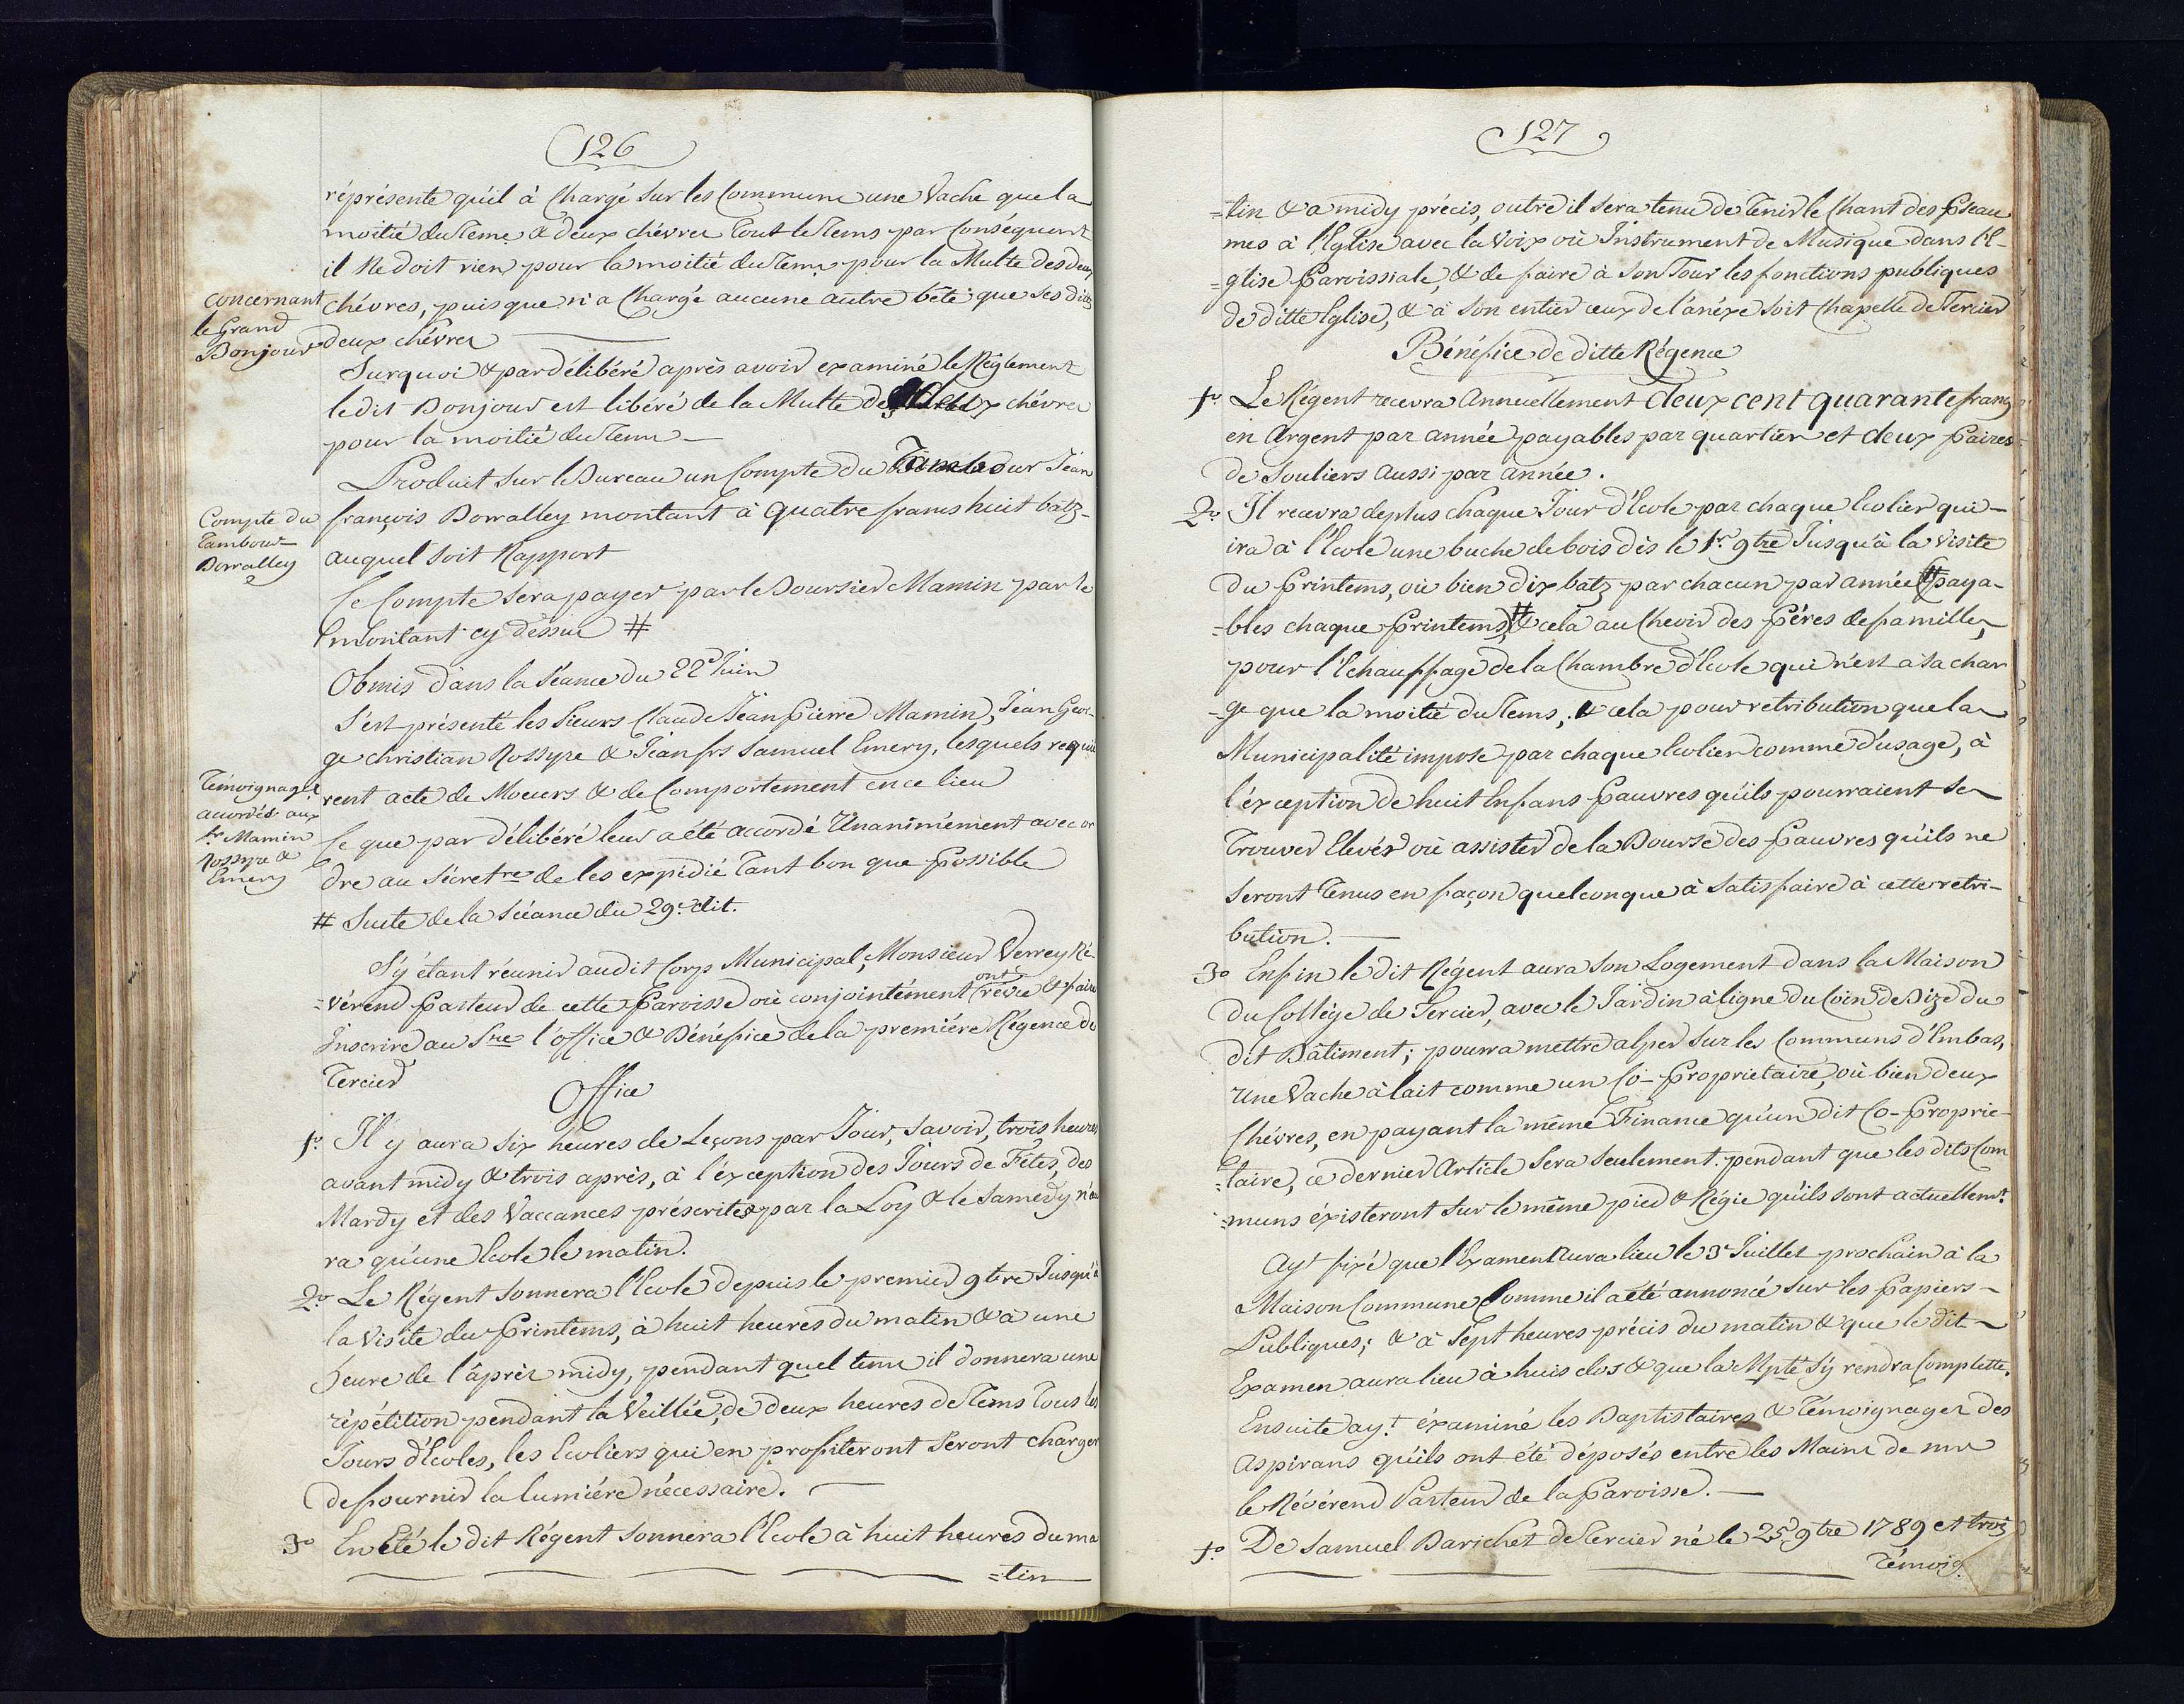 126
réprésente qu'il à Chargé sur les Commune une Vache que la
moitié du Tems & deux chévres tout le Tems par Conséquent
il Ne doit rien pour la moitié du Tems pour la Multe des deux
concernant
le Grand
Bonjour
chévres, puis que n'a Chargé aucune autre bête que ses dittes
deux chévres
Surquoi & par délibéré après avoir examiné le Réglement
le dit Bonjour est libéré de la Multe de chévres
pour la moitié du Tems
Produit sur le Bureau un Compte du Tambour Jéan
Compte du
Tambour
Dorralley
françois Dorralley montant à quatre francs huit batz
auquel soit Rapport
Ce Compte sera payer par le Boursier Mamin par le
montant cy dessus #
Obmis dans la Séance du 22e Juin
S'est présenté les Sieurs Claude Jéan Pierre Mamin, Jéan Geor-
ge christian Rossyre & Jéan frs Samuel Emery, lesquels requié
Témoignage
accordés aux
Srs Mamin
Rossyre &
Emery
rent acte de Moeurs & de Comportement en ce lieu
Ce que par délibéré leur a été accordé Unanimément avec or
dre au Sécretre de les expédié tant bon que Possible
# Suite de la Séance du 29e dit.
S'y étant réunir audit Corps Municipal, Monsieur Verrey Ré-
=vérend Pasteur de cette Paroisse où conjointément ont révue & faire
Inscrire au Sre l'office & Bénéfice de la premiére Régence de
Tercier
Office
1o Il y aura six heures de Leçons par Jour, Savoir, trois heures
avant midy & trois après, à l'éxception des Jours de Fêtes, des
Mardy et des Vaccances préscrites par la Loy & le Samedy n'au
ra qu'une Ecole le matin.
2o Le Régent sonnera l'Ecole depuis le premier 9bre Jusqu'à
la Visite du Printems, à huit heures du matin & à une
heure de l'âprès midy, pendant quel tems il donnera une
répétition pendant la Veillée, de deux heures de Tems Tous les
Jours d'Ecoles, les Ecoliers qui en profiteront Seront charger
de fournir la lumiére nécessaire.
3o En Eté le dit Régent sonnera l'Ecole à huit heures du ma
=tin
127
=tin & a midy précis, outre il sera tenu de Tenir le Chant des Pseau
mes à l'Eglise avec la Voix où Instrument de Musique dans l'E-
=glise Paroissiale, & de faire à son Tour les fonctions publiques
de ditte Eglise, & à son entier ceux de l'anéxe soit Chapelle de Tercier
Bénéfice de ditte Régence
1o Le Régent recevra Annuellement deux cent quarante francs
en Argent par année payables par quartier et deux Paires
de Souliers aussi par année.
2o Il recevra deplus chaque Jour d'Ecole par chaque Ecolier qui
ira à l'Ecole une buche de bois dès le 1r 9bre Jusqu'à la Visite
du Printems, où bien dix batz par chacun par année # paya-
=bles chaque Printems, # & cela au Choix des Péres de familles,
pour l'Echauffage de la Chambre d'Ecole qui n'est à sa char
=ge que la moitié du Tems, & cela pour retribution que la
Municipalité impose par chaque Ecolier comme d'usage, à
l'éxception de huit Enfans Pauvres qu'ils pourraient se
Trouver Elevés où assister de la Bourse des Pauvres qu'ils ne
seront Tenus en façon quelconque à Satisfaire à cette retri-
bution.
3o Enfin le dit Régent aura son Logement dans la Maison
du Collége de Tercier, avec le Jardin à ligne du Coin de Bize du
dit Bâtiment; pourra mettre alper sur les Communs d'Embas,
Une Vache à lait comme un Co-Proprietaire, où bien deux
Chévres, en payant la même Finance qu'un dit Co-Proprie-
=taire, ce dernier Article sera seulement pendant que les dits Com
=muns éxisteront sur le même pied & Régie qu'ils sont actuellemt.
Ayt fixé que l'Examen aura lieu le 3e Juillet prochain à la
Maison Commune Comme il a été annoncé sur les Papiers
Publiques; & à Sept heures précis du matin & que le dit
Examen aura lieu à huis clos & que la Mpté s'y rendra Complette.
Ensuite ayt. éxaminé les Baptistaires & Témoignages des
Aspirans qu'ils ont été déposés entre les Mains de mr
le Révérend Pasteur de la Paroisse.
1o De Samuel Barichet de Tercier né le 25e 9bre 1789 et trois
Témoig.